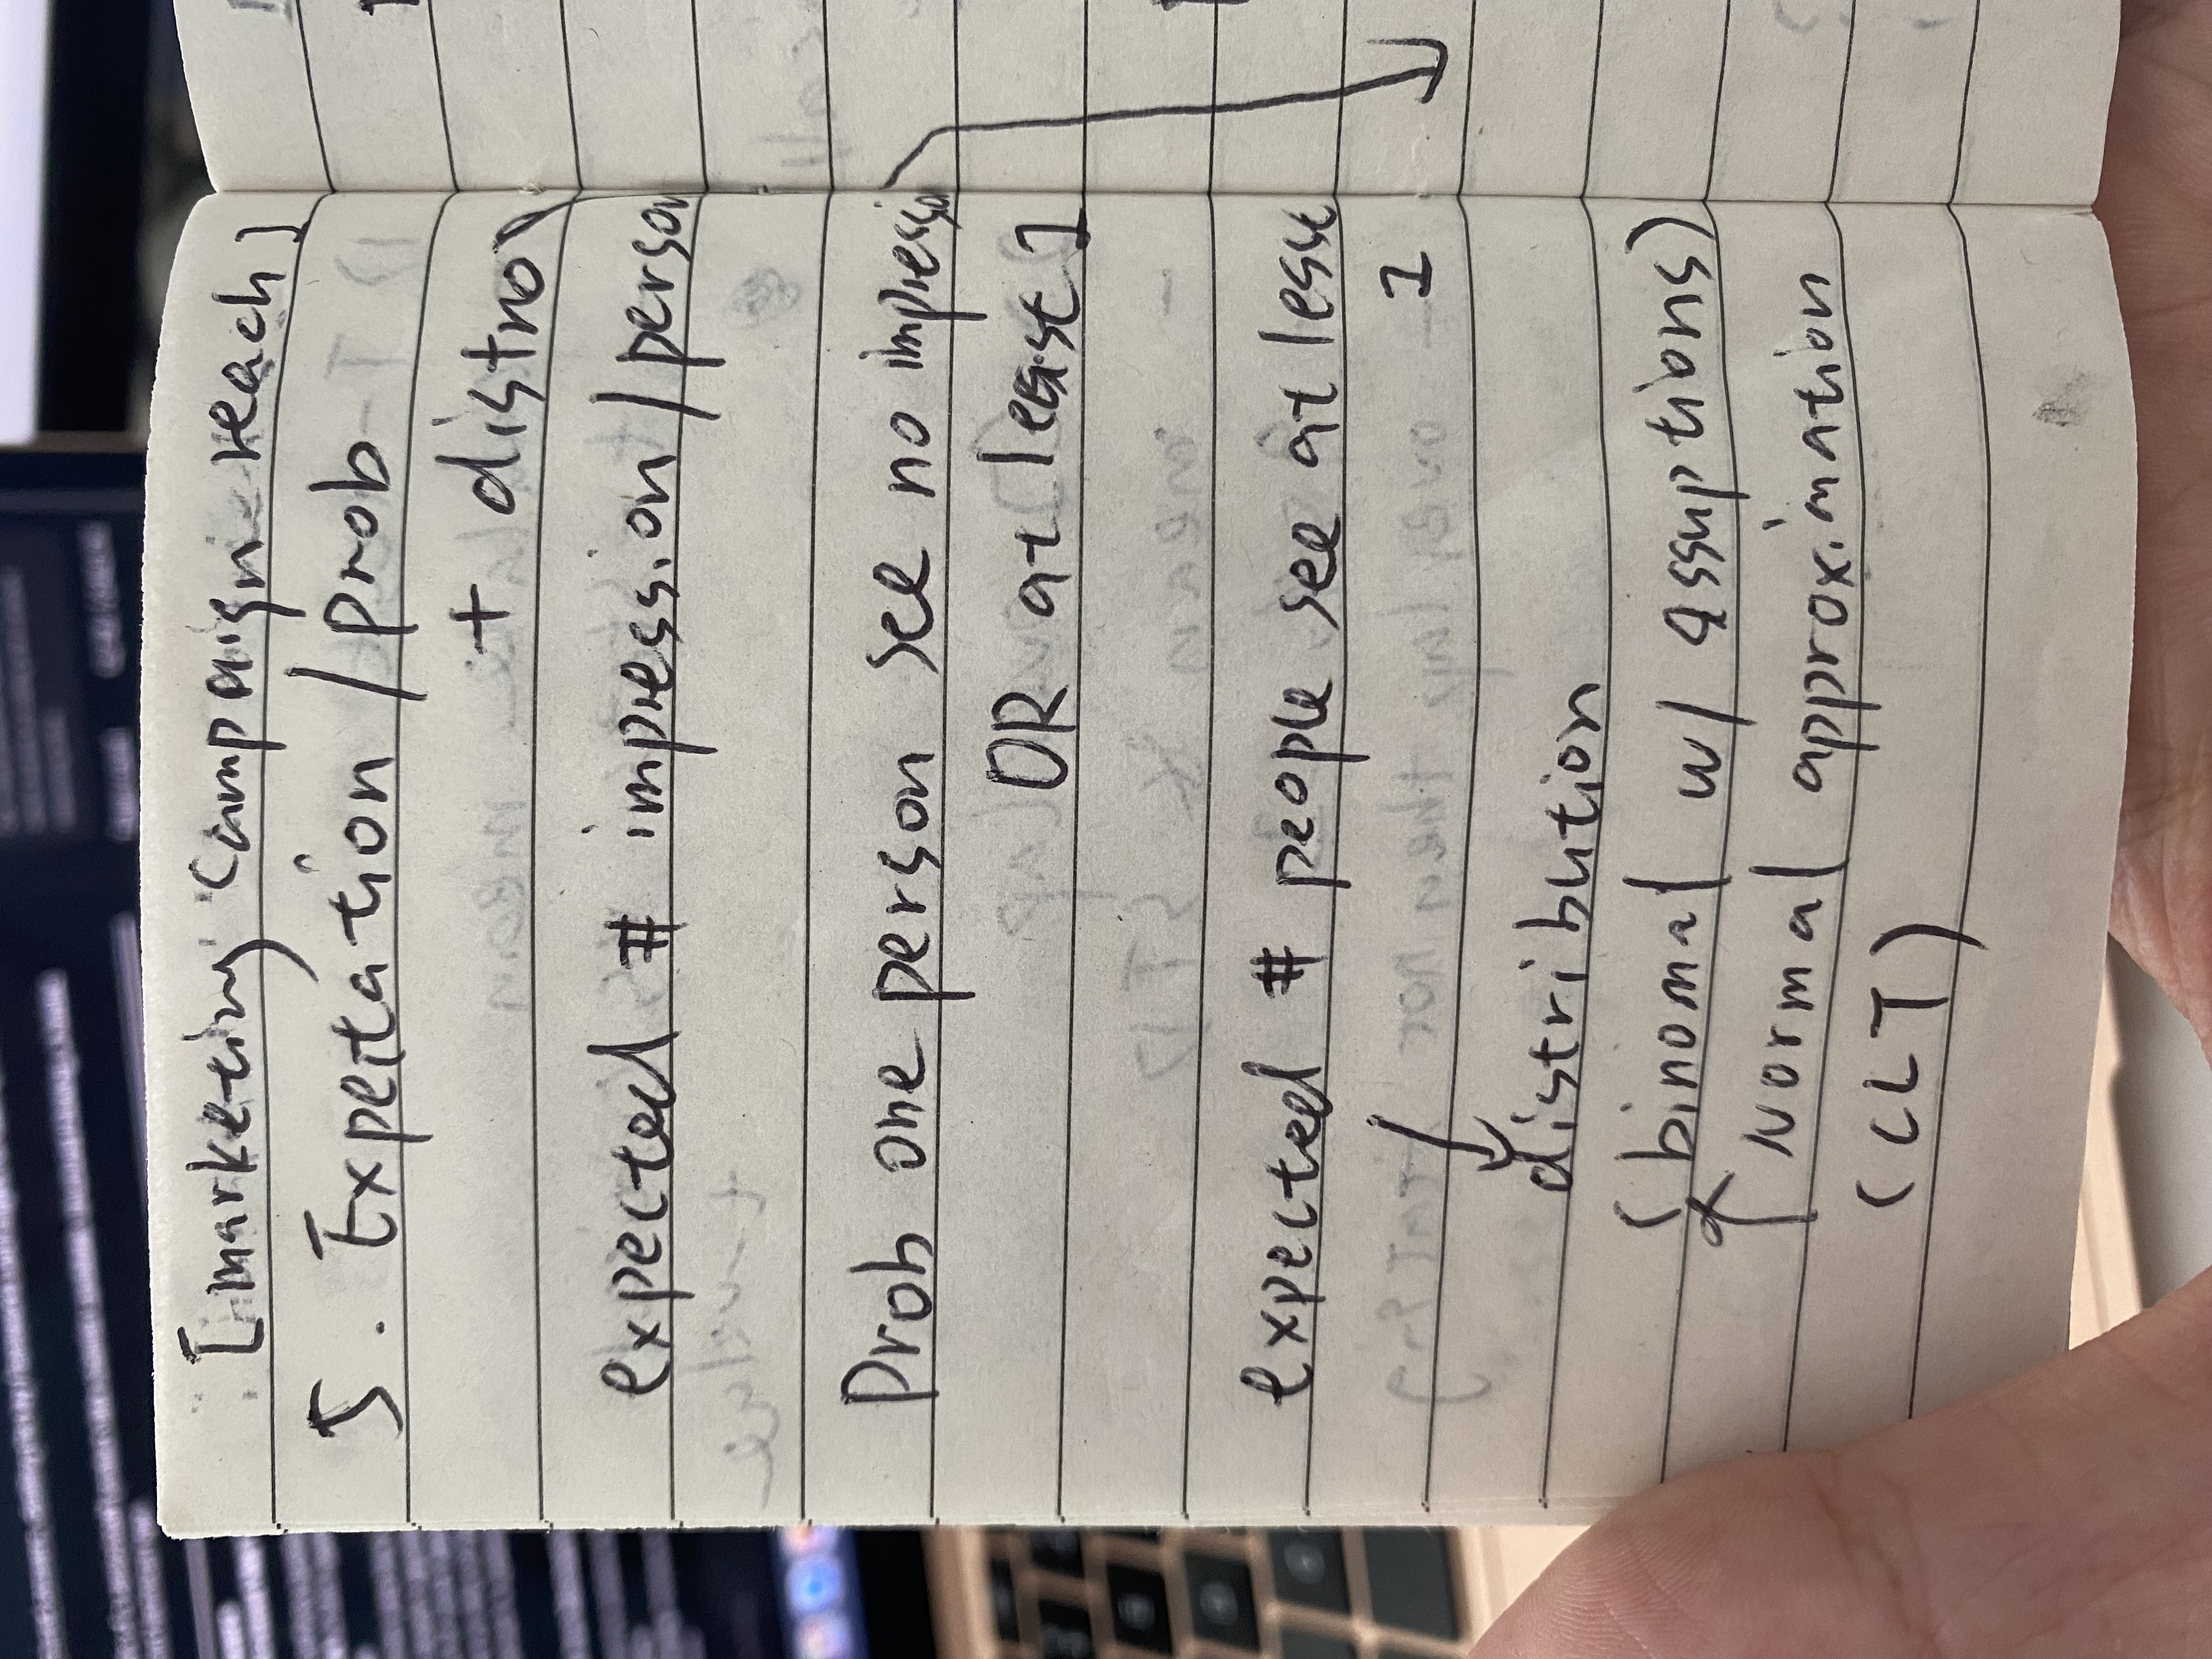 [marketing campaign reach]
5. Expectation / prob
+ distro
expected # impression / person
Prob one person see no impression
OR at least 1
expected # people see at lesst
1
distribution
(binomal w/ assuptions)
Normal approximation
(CLT)